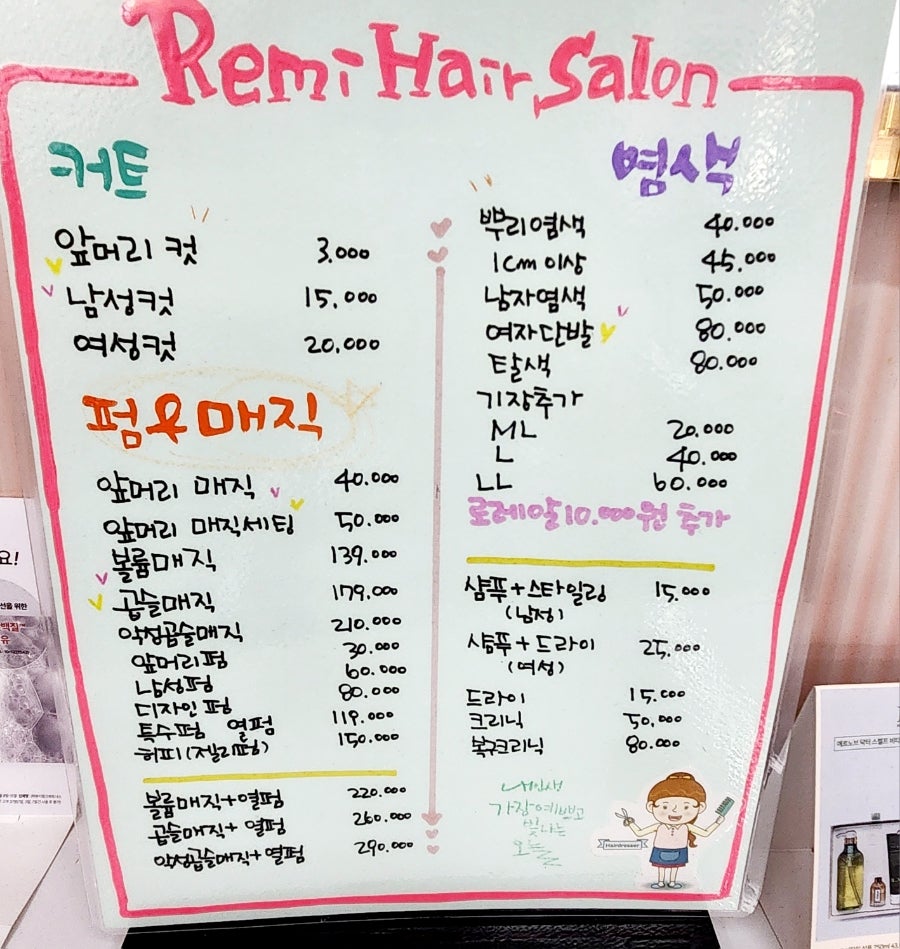 Remi Hair Salon
커트
앞머리 컷 3.000
남성컷 15.000
여성컷 20.000
펌&매직
앞머리 매직 40.000
앞머리 매직세팅 50.000
볼륨매직 139.000
곱슬매직 179.000
악성곱슬매직 210.000
앞머리펌 30.000
남성펌 60.000
디자인펌 80.000
특수펌 열펌 119.000
허피(젤리펌) 150.000
볼륨매직+열펌 220.000
곱슬매직+ 열펌 260.000
악성곱슬매직+열펌 290.000
염색
뿌리염색 40.000
1cm 이상 45.000
남자염색 50.000
여자단발 80.000
탈색 80.000
기장추가
ML 20.000
L 40.000
LL 60.000
로레알 10.000원 추가
샴푸+스타일링 15.000
(남정)
샴푸+드라이 25.000
(여성)
드라이 15.000
크리닉 50.000
복구크리닉 80.000
내인생
가장예쁘고
빛나는
오늘
Hairdresser
요!
선을 위한
백질
유